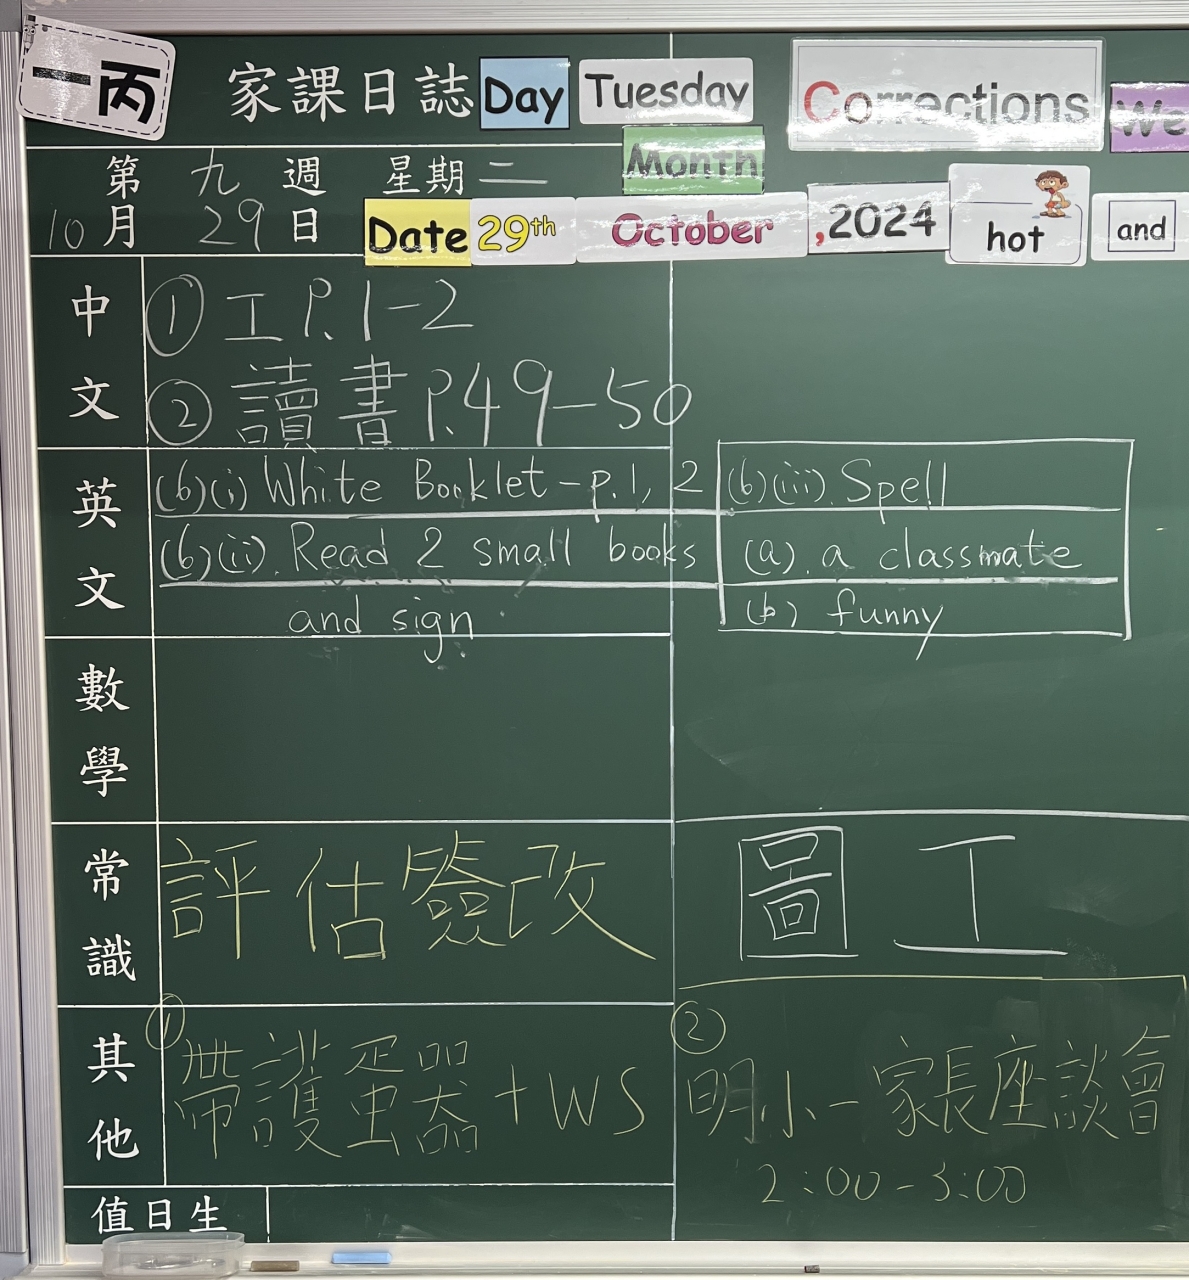 一丙
家課日誌 Day Tuesday Corrections We
Month
第 九 週 星期二
10月 29日 Date 29th October ,2024 hot and
中文
① 工 P.1-2
② 讀書 P.49-50
英文
(b)(i) White Booklet - p.1, 2
(b)(ii). Read 2 small books
and sign
(b)(iii). Spell
(a). a classmate
(b) funny
數學
常識
評估簽改
圖工
其他
① 帶護蛋器 + WS
② 明小一家長座談會
2:00 - 3:00
值日生